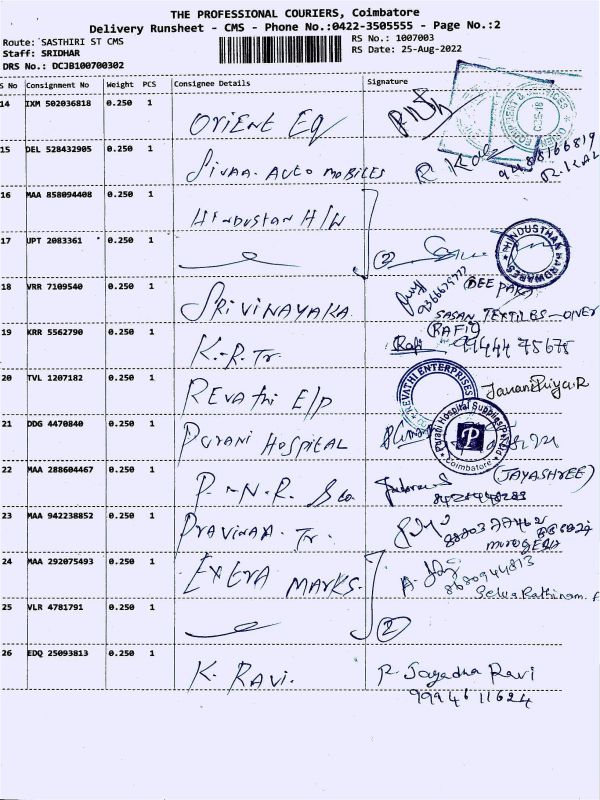 THE PROFESSIONAL COURIERS, Coimbatore
Delivery Runsheet - CMS - Phone No.:0422-3505555 - Page No.:2
Route: SASTHIRI ST CMS
RS No.: 1007003
Staff: SRIDHAR
RS Date: 25-Aug-2022
DRS No.: DCJB100700302
S No Consignment No Weight PCS Consignee Details Signature
14 IXM 502036818 0.250 1 Orient Eq
15 DEL 528432905 0.250 1 Sivaa. Auto mobiles 9488166819
R. KAL
16 MAA 858094408 0.250 1 Hindustan H/W
HINDUSTHAN HARDWARES
17 UPT 2083361 0.250 1 (2)
18 VRR 7109540 0.250 1 Sri Vinayaka (DEEPAK)
SASAN TEXTILES
19 KRR 5562790 0.250 1 K.-R. Tr. Rafi (RAFI) 99444 75675
20 TVL 1207182 0.250 1 Revathi E/P REVATHI ENTERPRISES JananiPriya.R
21 DDG 4470840 0.250 1 Purani Hospital Purani Hospital Supplies Pvt Ltd
P
Coimbatore
22 MAA 288604467 0.250 1 P.-N.R. (JAYASHREE)
23 MAA 942238852 0.250 1 Pravinaa. Tr.
24 MAA 292075493 0.250 1 Extra marks. 8680944813
Selva Rathinam.
25 VLR 4781791 0.250 1 (2)
26 EDQ 25093813 0.250 1 K. Ravi. R. Jayadha Ravi
99946 11624